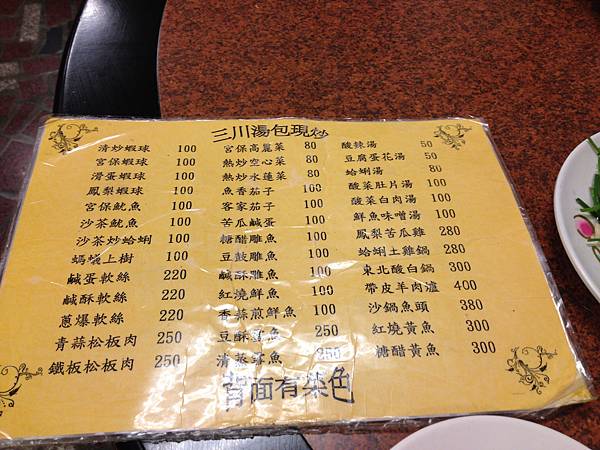 三川湯包現炒
清炒蝦球 100
宮保蝦球 100
滑蛋蝦球 100
鳳梨蝦球 100
宮保魷魚 100
沙茶魷魚 100
沙茶炒蛤蜊 100
螞蟻上樹 100
鹹蛋軟絲 220
鹹酥軟絲 220
蔥爆軟絲 220
青蒜松板肉 250
鐵板松板肉 250
宮保高麗菜 80
熱炒空心菜 80
熱炒水蓮菜 80
魚香茄子 100
客家茄子 100
苦瓜鹹蛋 100
糖醋雕魚 100
豆鼓雕魚 100
鹹酥雕魚 100
紅燒鮮魚 100
香蒜煎鮮魚 100
豆酥鱈魚 250
清蒸鱈魚 250
酸辣湯 50
豆腐蛋花湯 50
蛤蜊湯 80
酸菜肚片湯 100
酸菜白肉湯 100
鮮魚味噌湯 100
鳳梨苦瓜雞 280
蛤蜊土雞鍋 280
東北酸白鍋 300
帶皮羊肉爐 400
沙鍋魚頭 380
紅燒黃魚 300
糖醋黃魚 300
背面有菜色